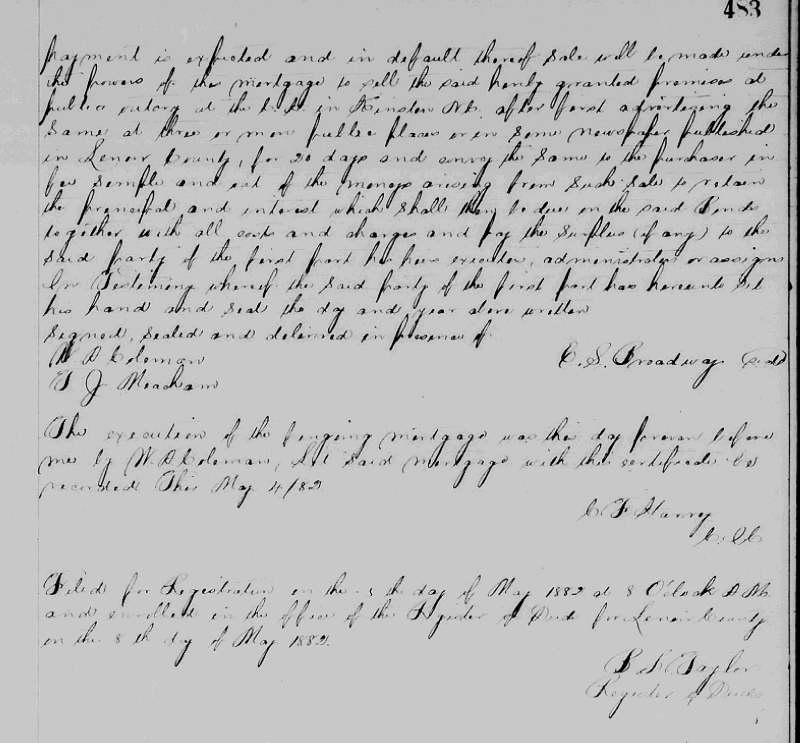 483
payment is expected and in default thereof Sale will be made under
the powers of this mortgage to sell the said hereby granted premises at
public outcry at the C. H. in Kinston N.C. after first advertizing the
Same at three or more public places or in Some newspaper published
in Lenoir County, for 20 days and convey the Same to the purchaser in
fee Simple and out of the moneys arising from Such Sale to retain
the principal and interest which Shall then be due on the said Bonds
together with all costs and charges and pay the Surplus (if any) to the
Said party of the first part his heirs executors, administrators or assigns
In Testimony whereof the Said party of the first part has hereunto Set
his hand and Seal the day and year above written
Signed, Sealed and delivered in presence of
W A Coleman
C. S. Broadway Seal
T J Meacham
The execution of the foregoing mortgage was this day proven before
me by W. A Coleman, Let Said mortgage with this certificate be
recorded This May 4/82
C F
C. S. C.
Filed for Registration on the 8 th day of May 1882 at 8 O'clock A M.
and enrolled in the office of the Register of Deeds for Lenoir County
on the 8 th day of May 1882.
Taylor
Register of Deeds